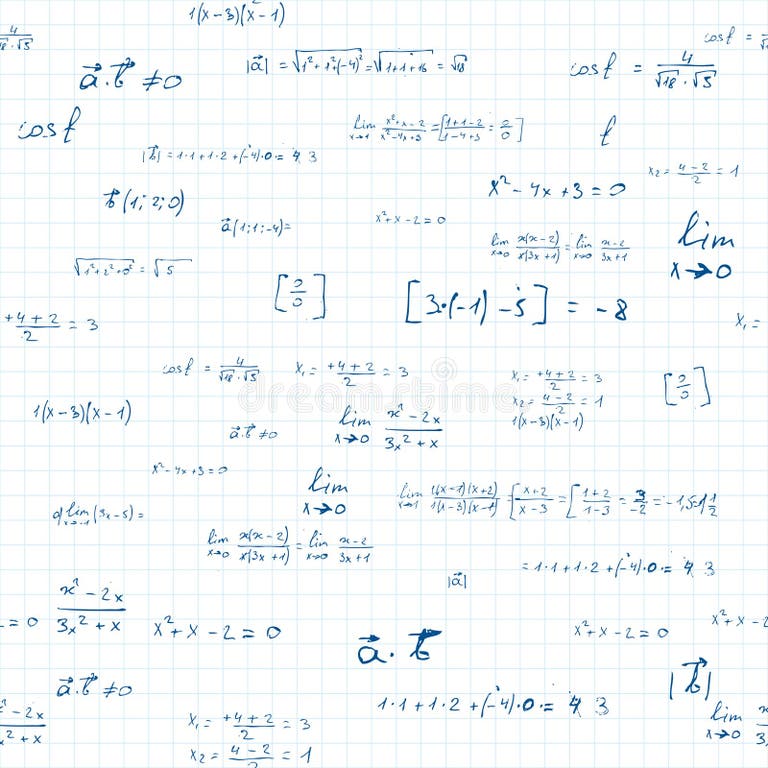 1(x-3)(x-1)
4
√18·√5
a⃗·b⃗ ≠0
|a⃗| = √1²+1²+(-4)² = √1+1+16 = √18
cos f = 4/√18·√5
cos f =
cos f
lim x→1 x²+x-2/x²-4x+3 = [1+1-2/1-4+3 = 0/0]
f
|b⃗| = 1·1+1·2+(-4)·0= 3
x₂= 4-2/2 = 1
x²-4x+3=0
b⃗(1;2;0)
a⃗(1;1;-4)=
x²+x-2=0
lim x→0 x(x-2)/x(3x+1) = lim x→0 x-2/3x+1
lim
x→0
√1²+2²+0² = √5
[0/0]
[3·(-1)-5] = -8
+4+2/2 = 3
x₁=
cos f = 4/√18·√5
x₁= +4+2/2 = 3
x₁= +4+2/2 = 3
x₂= 4-2/2 = 1
1(x-3)(x-1)
[0/0]
dreamstime
1(x-3)(x-1)
a⃗·b⃗ ≠0
lim x→0 x²-2x/3x²+x
x²-4x+3=0
lim
x→0
lim x→1 (x-1)(x+2)/1(x-3)(x-1) = [x+2/x-3 = [1+2/1-3 = 3/-2 = -1,5
lim x→-1 (3x-5)=
lim x→0 x(x-2)/x(3x+1) = lim x→0 x-2/3x+1
=1·1+1·2+(-4)·0= 3
|a⃗|
x²-2x/3x²+x
= 0
x²+x-2=0
a⃗·b⃗
x²+x-2=0
x²+x-2
a⃗·b⃗ ≠0
1·1+1·2+(-4)·0= 3
|b⃗|
-2x
+x
x₁= +4+2/2 = 3
x₂= 4-2/2 = 1
lim
x→0